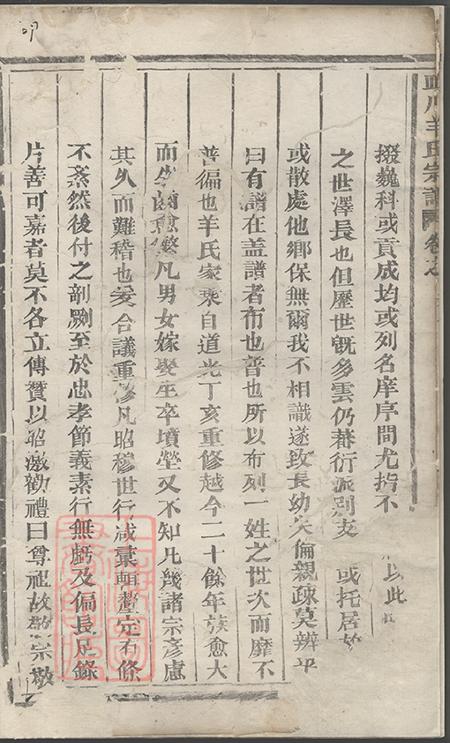 羊氏宗譜
掇巍科或貢成均或列名庠序間尤指不 以此
之世澤長也但歷世旣多雲仍蕃衍派別支 或托居
或散處他鄉保無爾我不相識遂致長幼失倫親疎莫辨乎
曰有譜在盖譜者布也普也所以布列一姓之世次而靡不
普徧也羊氏家乘自道光丁亥重修越今二十餘年族愈大
而生齒愈繁凡男女嫁娶生卒墳塋又不知凡幾諸宗彥慮
其久而難稽也爰合議重修凡昭穆世行咸彙輯釐定有條
不紊然後付之剞劂至於忠孝節義素行無虧及偏長足錄
片善可嘉者莫不各立傳贊以昭激勸禮曰尊祖故敬宗敬